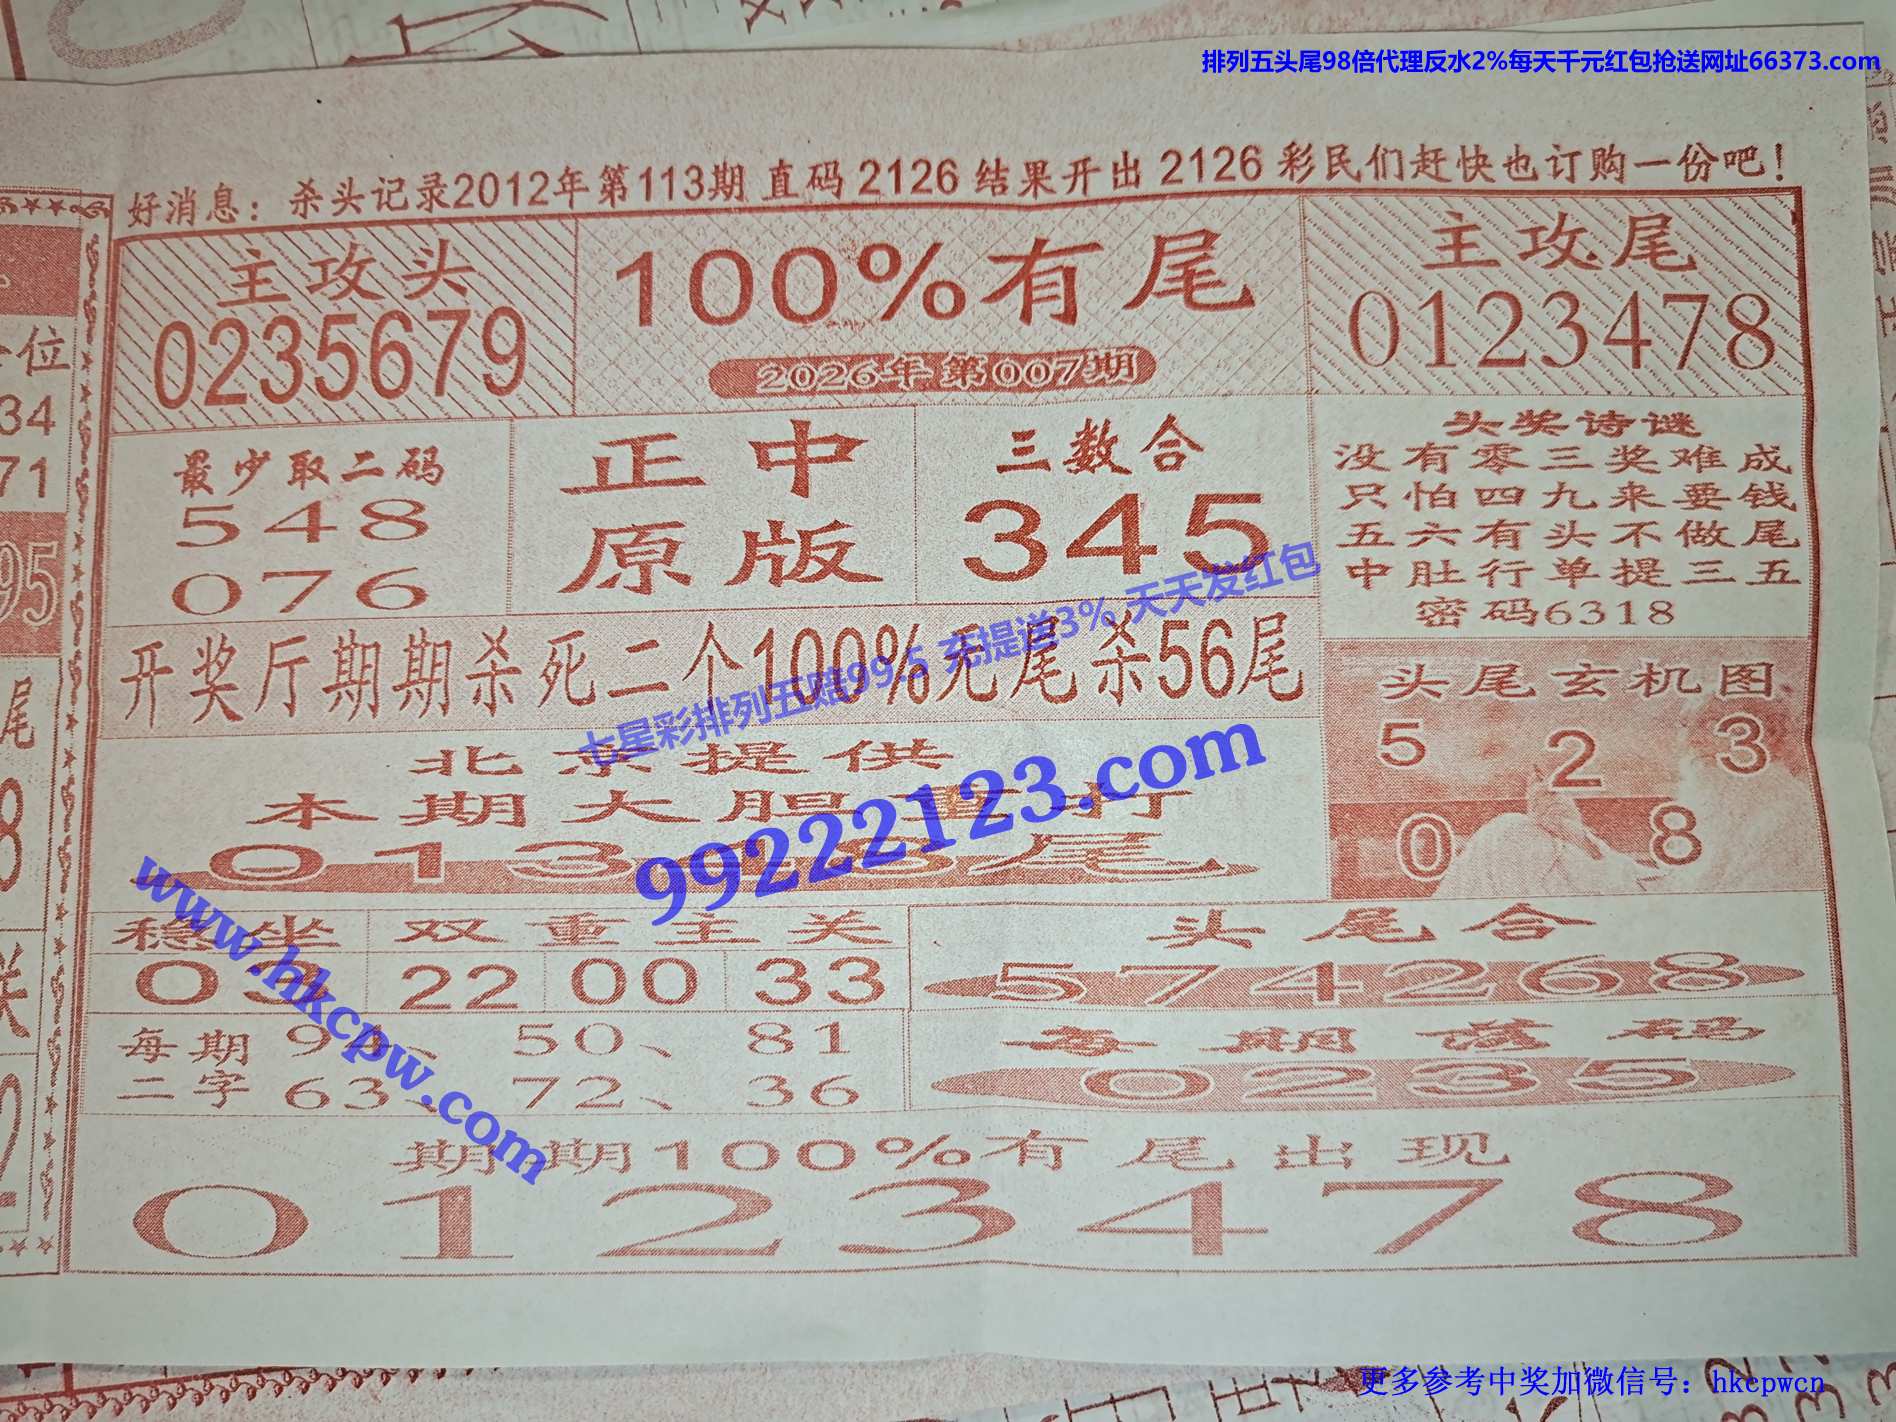 排列五头尾98倍代理反水2%每天千元红包抢送网址66373.com
好消息：杀头记录2012年第113期 直码 2126 结果开出 2126 彩民们赶快也订购一份吧！
主攻头
0235679
100%有尾
2026年 第007期
主攻尾
0123478
最少取二码
548
076
正中
原版
三数合
345
头奖诗谜
没有零三奖难成
只怕四九来要钱
五六有头不做尾
中肚行单提三五
密码6318
开奖厅期期杀死二个100%无尾杀56尾
七星彩排列五赔99.5 充提送3% 天天发红包
头尾玄机图
5 2 3
0 8
北京提供
本期大胆重打
013 尾
99222123.com
www.hkcpw.com
稳坐
03
双重主关
22 00 33
头尾合
574268
每期
二字
50、 81
63、 72、 36
每期落码
0235
期期100%有尾出现
0123478
位
34
71
95
尾
8
2
更多参考中奖加微信号：hkcpwcn